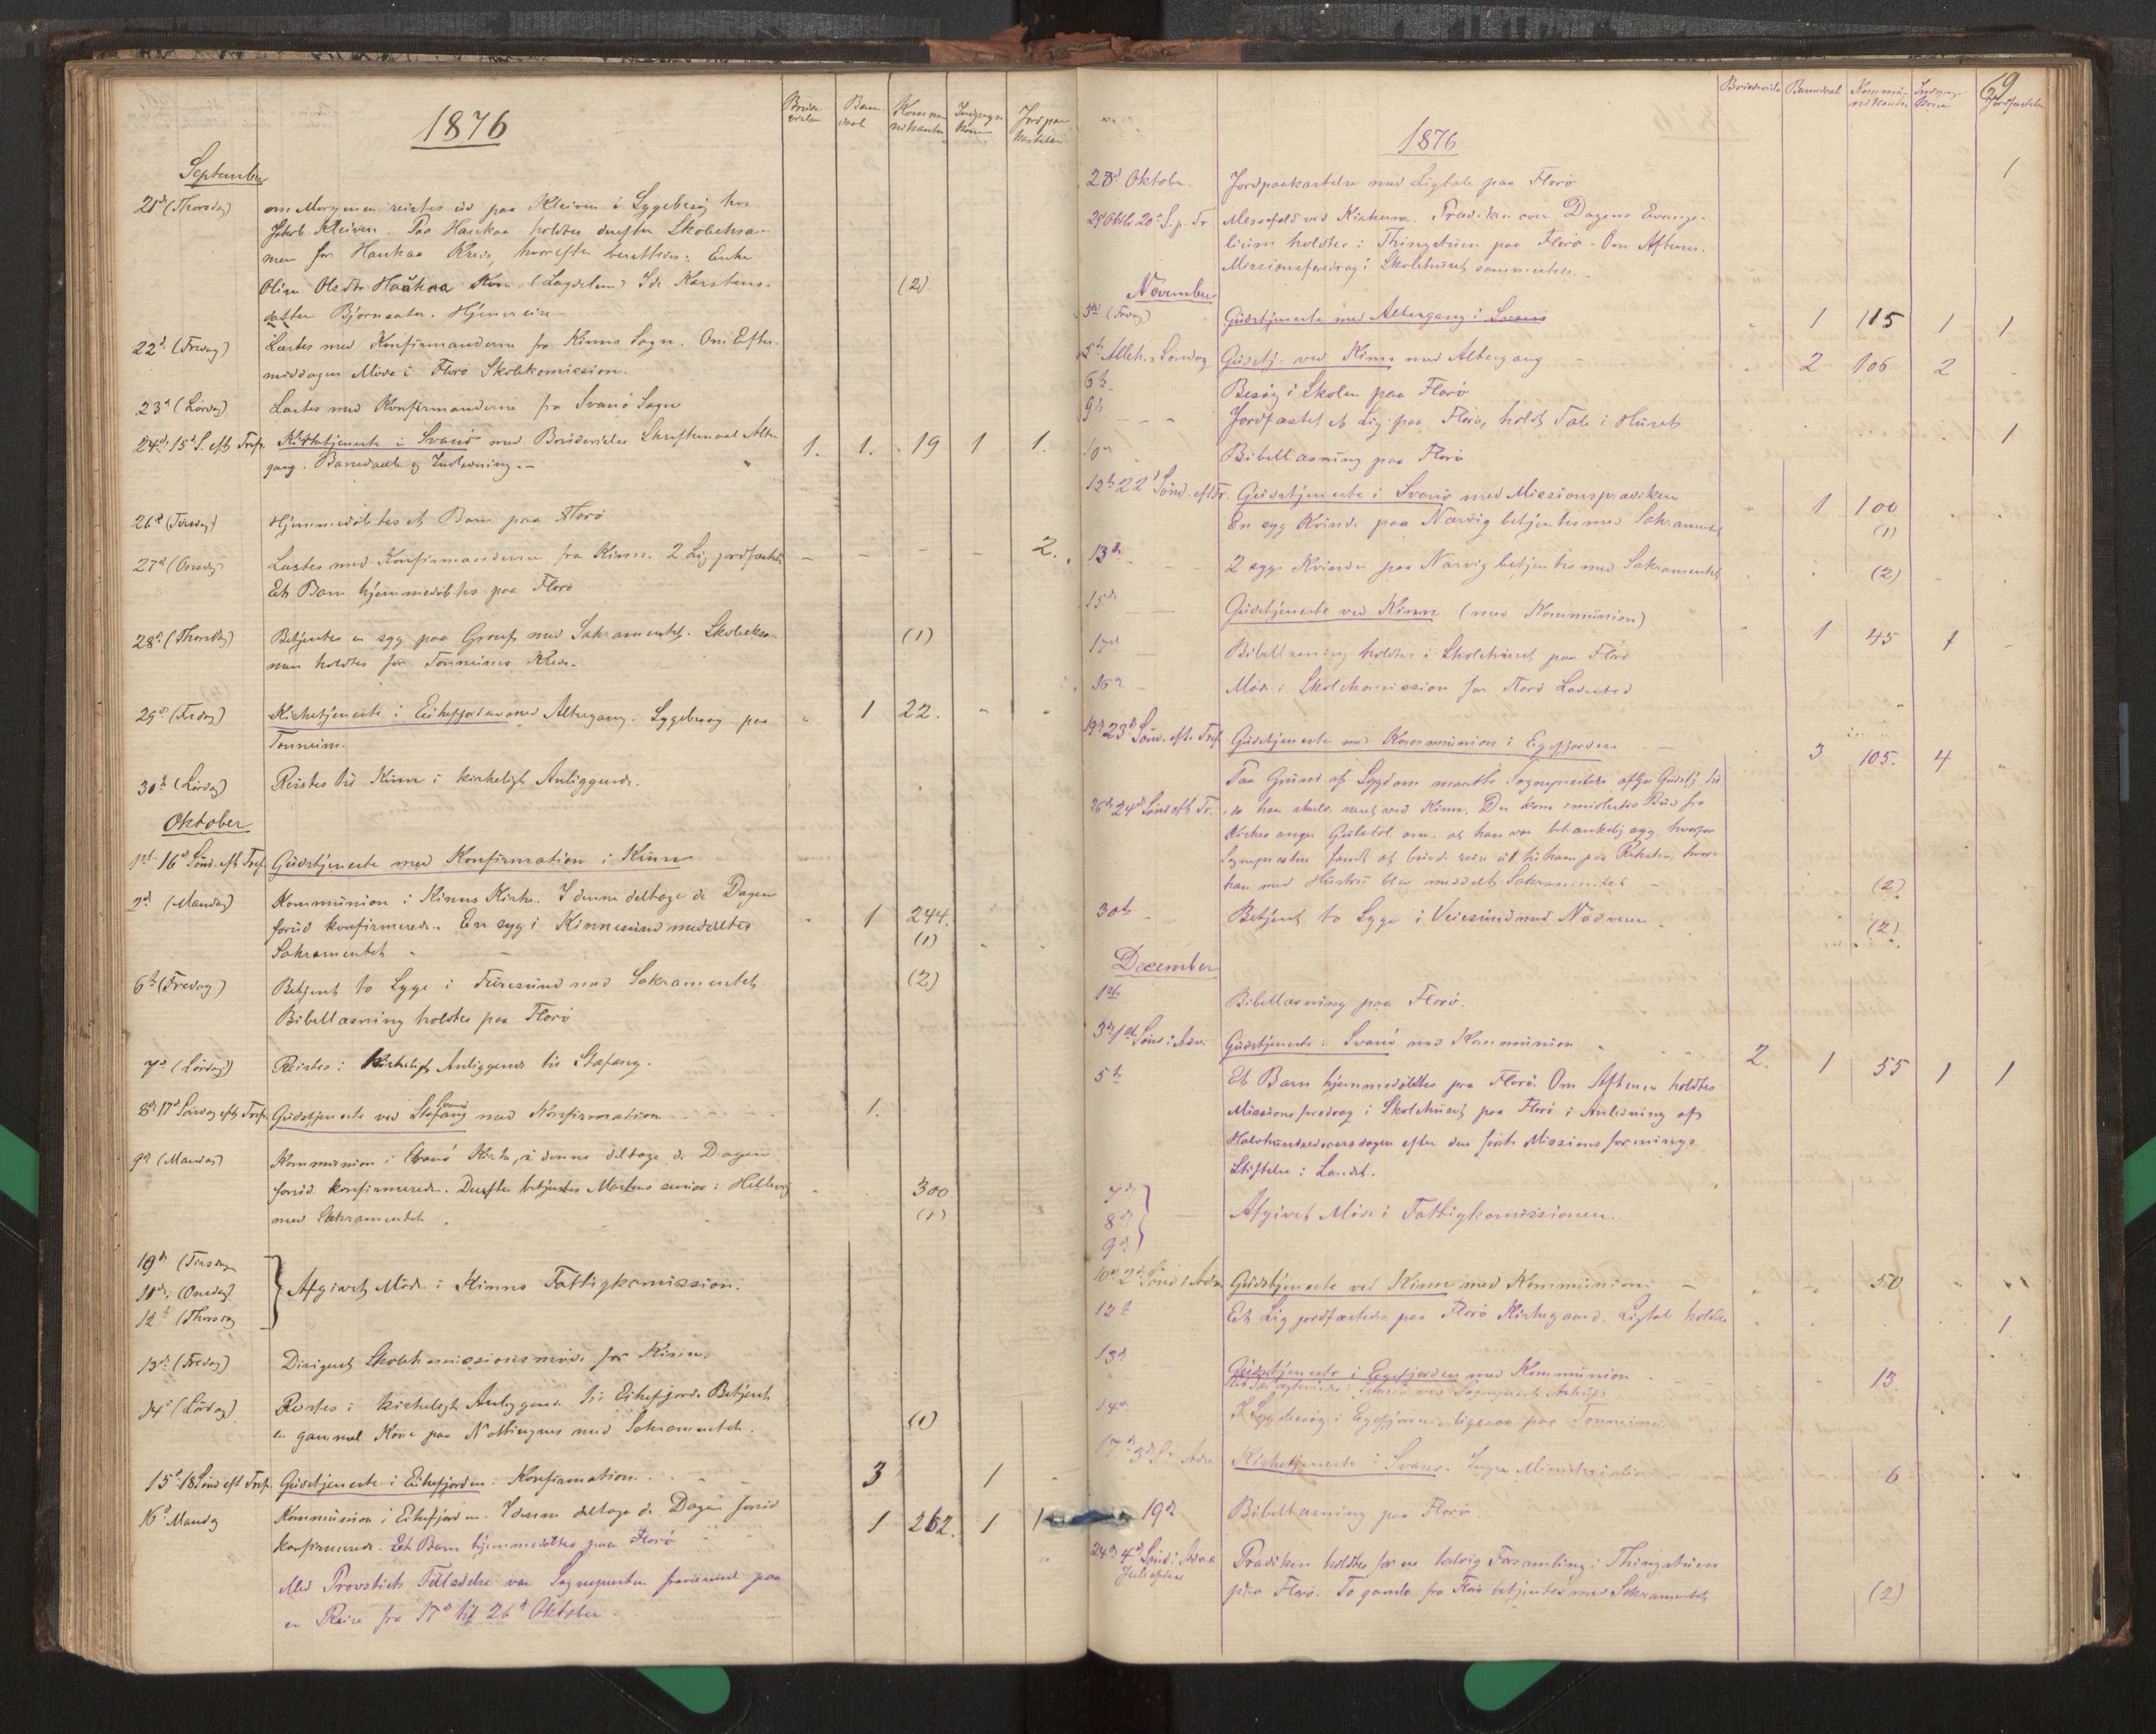 1876
Brude vielser
Barn daab
Kommu nikanter
Indgangs Koner
Jordpaa kastelse
September
21d (Thorsdag) om Morgenen reistes ud paa Kleiven i Sygebesøg hos
Jakob Kleiven. Paa Haukaa holdtes derefter Skoleexa-
men for Haukaa Kreds, hvorefter berettedes: Enke
Oline Olsdtr Haukaa Kone (Lægdslem) Ida Karstens- (2)
datter Bjørnsater. Hjemreise
22d (Fredag) Læstes med Konfirmanderne fra Kinns Sogn. Om Efter-
middagen Møde i Florø Skolekomission.
23d (Lørdag) Læstes med Konfirmanderne fra Svanø Sogn
24d 15d S. eft Tref. Kirketjeneste i Svanø med Brudevielse Skriftemaal Alter 1. 1. 19 1 1.
gang. Barnedaab og Indledning.
26d (Tirsdag) Hjemmedøbtes et Barn paa Florø
27d (Onsdag) Læstes med Konfirmanderne fra Kinn. 2 Lig jordfæstet - - - - 2.
Et Barn hjemmedøbtes paa Florø
28d (Thorsdag) Betjentes en syg paa med Sakramentet. Skoleexa- (1)
men holdtes for Tonneims Kreds.
29d (Fredag) Kirketjeneste i Eikefjorden med Altergang. Sygebesøg paa " 1 22. " "
Tonneim.
30te (Lørdag) Reistes til Kinn i kirkeligt Anliggende.
Oktober
1ste 16d Sønd. eft Tref. Gudstjeneste med Konfirmation i Kinn
2d (Mandag) Kommunion i Kinns Kirke. I denne deltoge de Dagen
forud konfirmerede. En syg i Kinnesund meddeltes " 1 244.
Sakramentet (1)
6te (Fredag) Betjent to Syge i Furesund med Sakramentet (2)
Bibellæsning holdtes paa Florø
7d (Lørdag) Reistes i Kirkeligt Anliggende til Stafang.
8d 17d Søndag eft Tref. Gudstjeneste ved Stafang Svanø med Konfirmation 1.
9d (Mandag) Kommunion i Svanø Kirke, i denne deltoge de Dagen
forud konfirmerede. Derefter betjentes Martens senior i 300
med Sakramentet. (1)
10d (Tirsdag
11d (Onsdag) Afgivet Møde i Kinns Fattigkomission.
12t (Thorsdag
13d (Fredag) Dirigert Skolekomissionsmøde for Kinn.
14d (Lørdag) Reistes i kirkeligt Anliggende til Eikefjord. Betjent
en gammel Kone paa Nøttingnes med Sakramentet. (1)
15d 18 Sønd eft Tref. Gudstjeneste i Eikefjorden: Konfirmation. 3 1
16d Mandag Kommunion i Eikefjorden. I denne deltoge de Dagen forud 1 262. 1 1
konfirmerede. Et Barn hjemmedøbtes paa Florø
Med Provstiets Tilladelse var Sognepresten fraværende paa
en Reise fra 17d til 26d Oktober.
69
Brudevielse
Barnedaab
Kommu nikanter
Indgangs Koner
Jordfæstelse
1876
28d Oktober. Jordpaakastelse med Ligtale paa Florø 1
29d Oktb. 20d S. p. Tr. Messefald ved Kirkerne. Prædiken over Dagens Evange-
lium holdtes i Thingstuen paa Florø. Om Aftenen
Missionsforedrag i Skolehuset sammesteds.
November
3die (Fredag) Gudstjeneste med Altergang i Svanø " 1 115 1 1
5te Alleh. Søndag Gudstj. ved Kinn med Altergang " 2 106 2
6te Besøg i Skolen paa Florø
9de Jordfæstet et Lig paa Florø, holdt Tale i Huset 1
10de Bibellæsning paa Florø
12te 22d Sønd. eft Tr. Gudstjeneste i Svanø med Missionsprædiken " 1 100
En syg Kvinde paa Narvig betjentes med Sakramentet (1)
13de 2 syge Kvinder paa Narvig betjentes med Sakramentet (2)
15de Gudstjeneste ved Kinn (med Kommunion)
17de Bibellæsning holdtes i Skolehuset paa Florø 1 45 1
16de Møde i Skolekomission for Nord Ladested
19de 23d Sønd. eft. Tref Gudstjeneste med Kommunion i Egefjorden 3 105. 4 "
Paa Grund af Sygdom maatte Sognepresten aflyse Gudstj.
26de 24d Sønd eft Tr. da han skulde været ved Kinn. Der kom imidlertid Bud fra
Kirkesanger Guletol om at han var betænkelig syg, hvorfor
Sognepresten fandt at burde reise ud til ham paa Reksten, hvor
han med Hustru blev meddelt Sakramentet (2)
30te Betjent to Syge i Veiesund med Nadveren (2)
December
1ste Bibellæsning paa Florø.
3die 1ste Sønd i Adv. Gudstjeneste i Svanø med Kommunion 2. 1 55 1 1
5te Et Barn hjemmedøbtes paa Florø. Om Aftenen holdtes
Missionsforedrag i Skolehuset paa Florø i Anledning af
Halvhundredeaarsdagen efter den første Missionsforenings
Stiftelse i Landet.
7de
8de Afgivet Møde i Fattigkomissionen.
9de
10de 2d Sønd i Adv. Gudstjeneste ved Kinn med Kommunion 50
12te Et Lig jordfæstedes paa Florø Kirkegaard. Ligtale holdtes 1
13de Gudstjeneste i Egefjorden med Kommunion 13
14de I Sygebesøg i Egefjorden, ligesaa paa Tonneim
17de 3d S. i Adv. Kirketjeneste i Svanø. Ingen Ministerialia 6
19de Bibellæsning paa Florø
24de 4d Sønd i Adve Prædiken holdtes for en talrig Forsamling i Thingstuen
Juleaften paa Florø. To gamle fra Florø betjentes med Sakramentet (2)